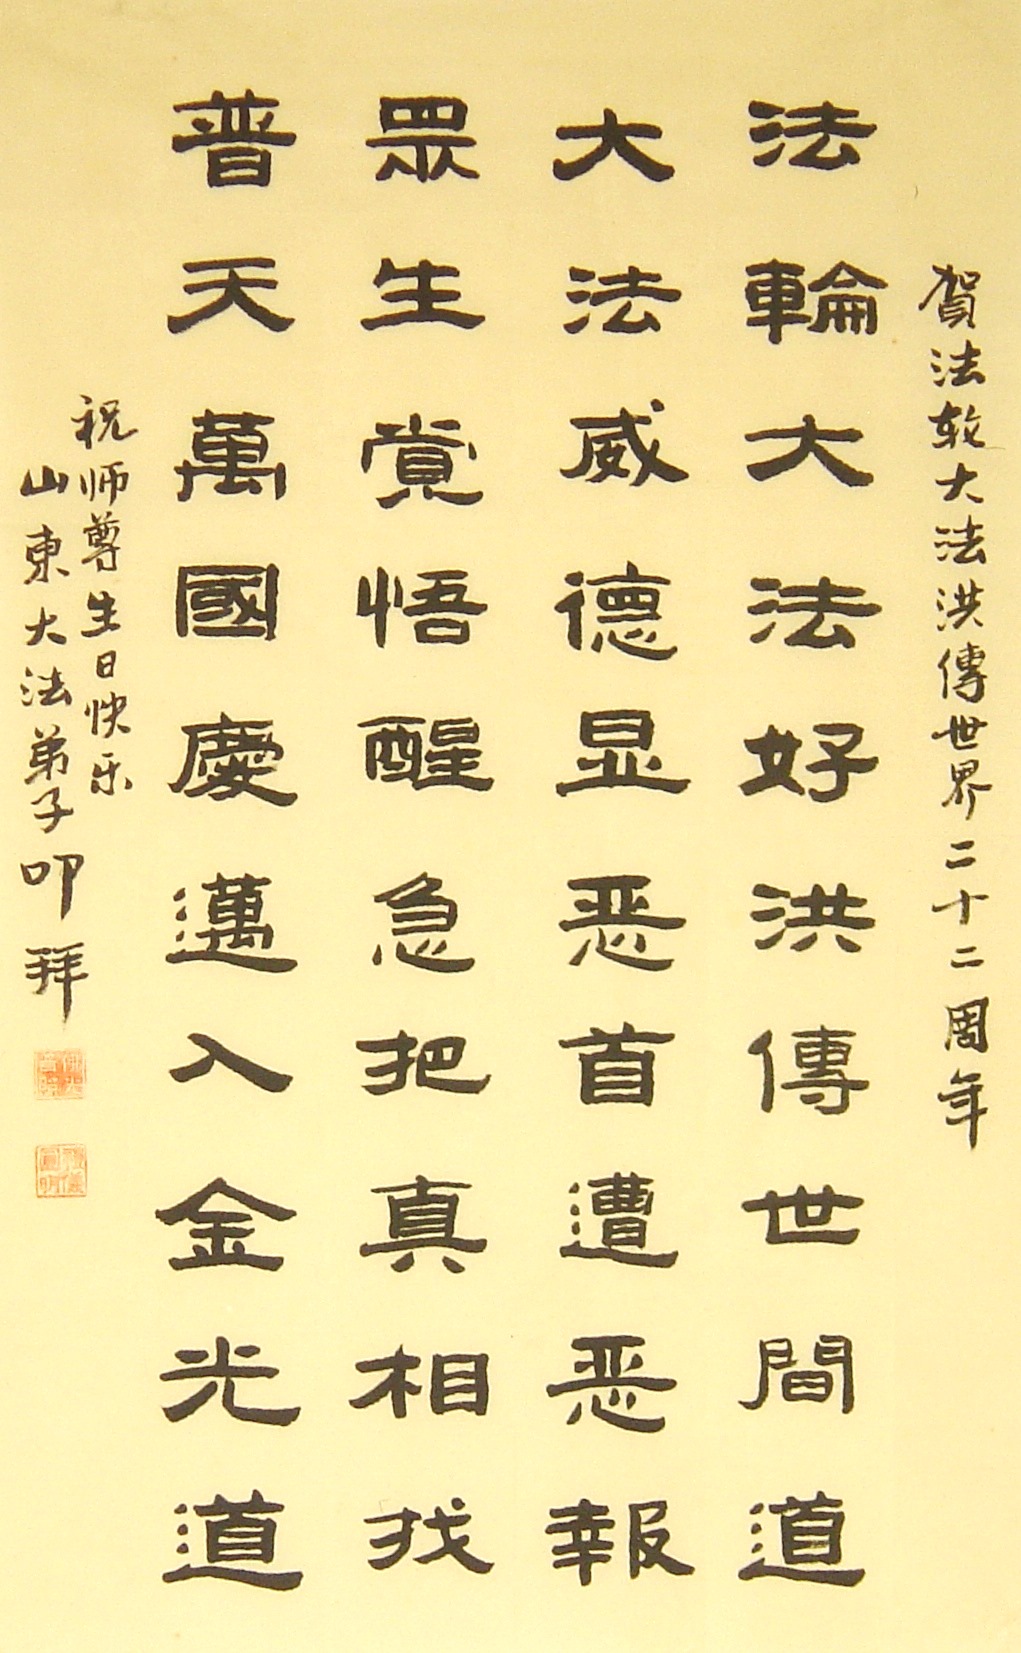 賀法轮大法洪傳世界二十二周年
法輪大法好洪傳世間道
大法威德显恶首遭恶報
眾生覚悟醒急把真相找
普天萬國慶邁入金光道
祝师尊生日快乐
山東大法弟子叩拜